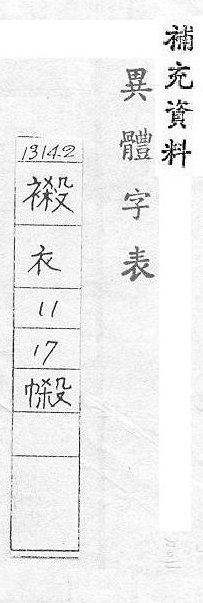 補充資料
異體字表
1314.2
𧜁
衣
11
17
𢄌